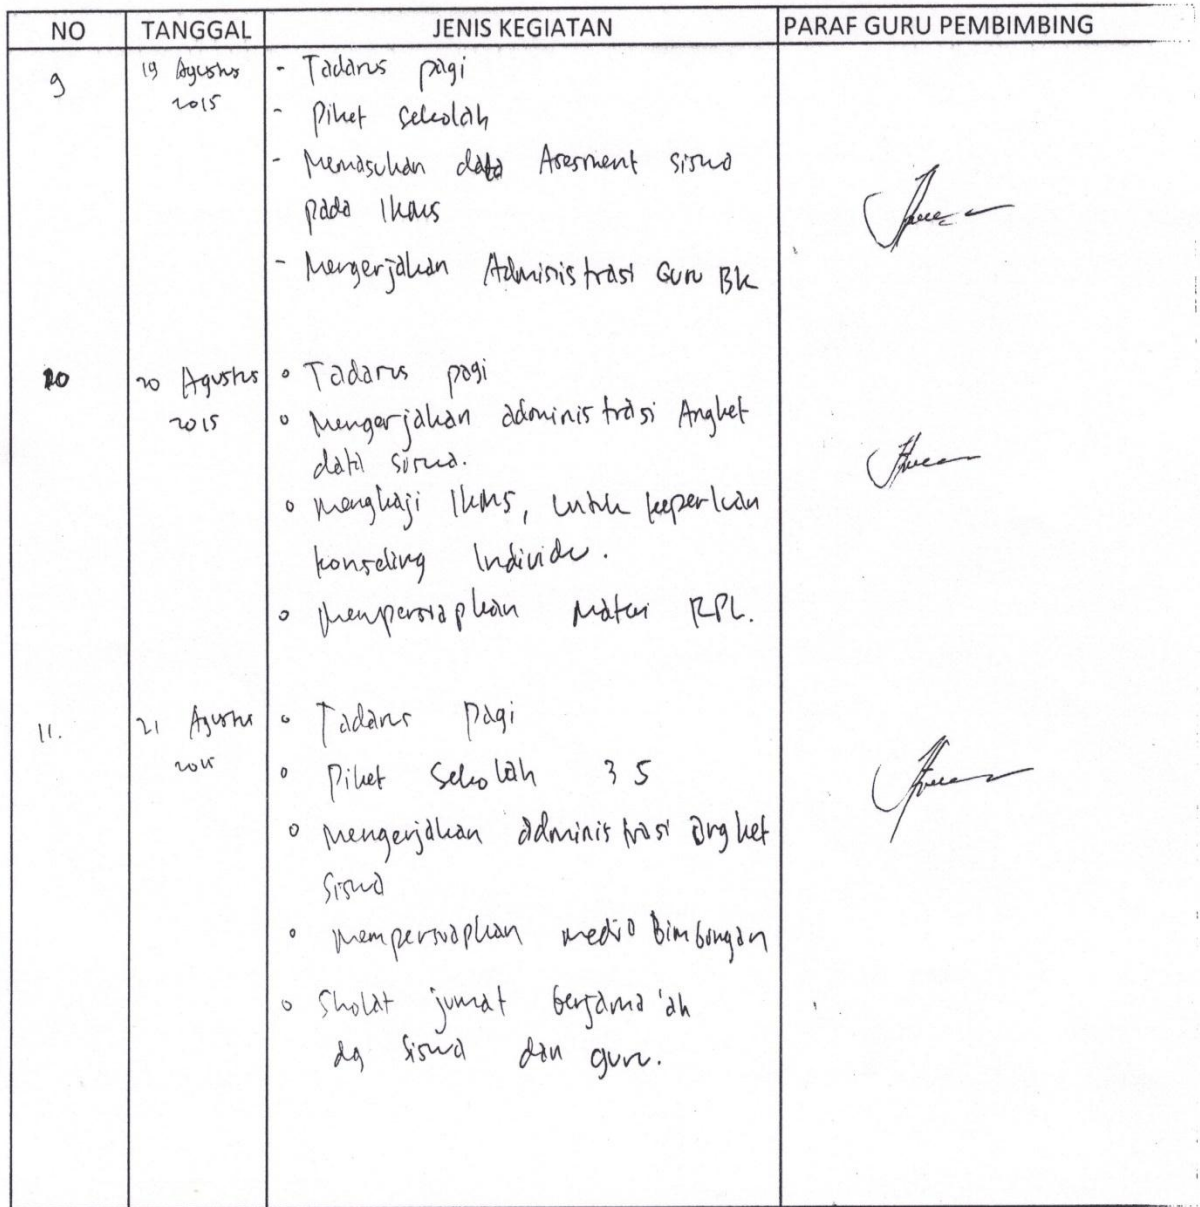 NO TANGGAL JENIS KEGIATAN PARAF GURU PEMBIMBING
9 19 Agustus 2015 - Tadarus pagi
- Piket sekolah
- Memasukan data Asesment siswa
pada Ikms
- Mengerjakan Administrasi Guru BK
10 20 Agustus 2015 Tadarus pagi
Mengerjakan administrasi Angket
data siswa.
Mengkaji Ikms, untuk keperluan
konseling Individu.
Mempersiapkan Materi RPL.
11. 21 Agustus 2015 Tadarus Pagi
Piket Sekolah 3 5
Mengerjakan administrasi angket
Siswa
Mempersiapkan media Bimbingan
Sholat jumat berjama'ah
dg siswa dan guru.